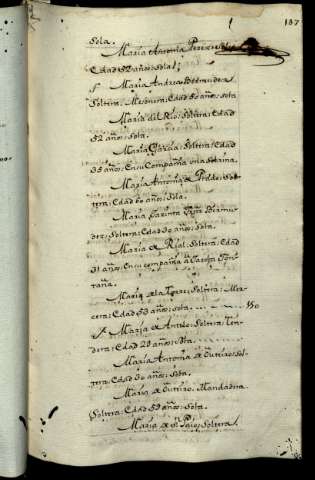 187
Sola.
Maria Antonia
Edad 52 años: Sola:
Maria Andrea
Soltera: Mesonera: Edad 50 años: Sola
Maria del Rio: Soltera: Edad
52 años: Sola.
Maria Garcia: Soltera: Edad
35 años: En Compañia
Maria Antonia de Prado: Sol-
tera: Edad 60 años: Sola.
Maria Jacinta
dez: Soltera: Edad 30 años: Sola.
Maria de Rial: Soltera: Edad
31 años: En compañia
Maria de la Torre: Soltera: Mer-
cera: Edad 53 años: Sola
Maria de Antelo: Soltera: Ten-
dera: Edad 29 años: Sola.
Maria Antonia de Outeiro: Sol-
tera: Edad 30 años: Sola.
Maria de Outeiro: Mandadera
Soltera: Edad 59 años: Sola.
Maria de Soltera: